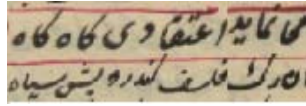 می نماید اعتقادی کاه کاه
ان رنک فلسف کندرویش سیاه